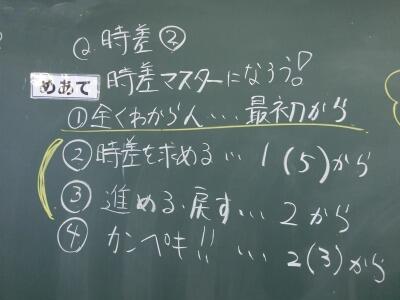 Q. 時差②
めあて 時差マスターになろう!
①全くわからん…最初から
②時差を求める…1(5)から
③進める、戻す…2から
④カンペキ!!…2(3)から